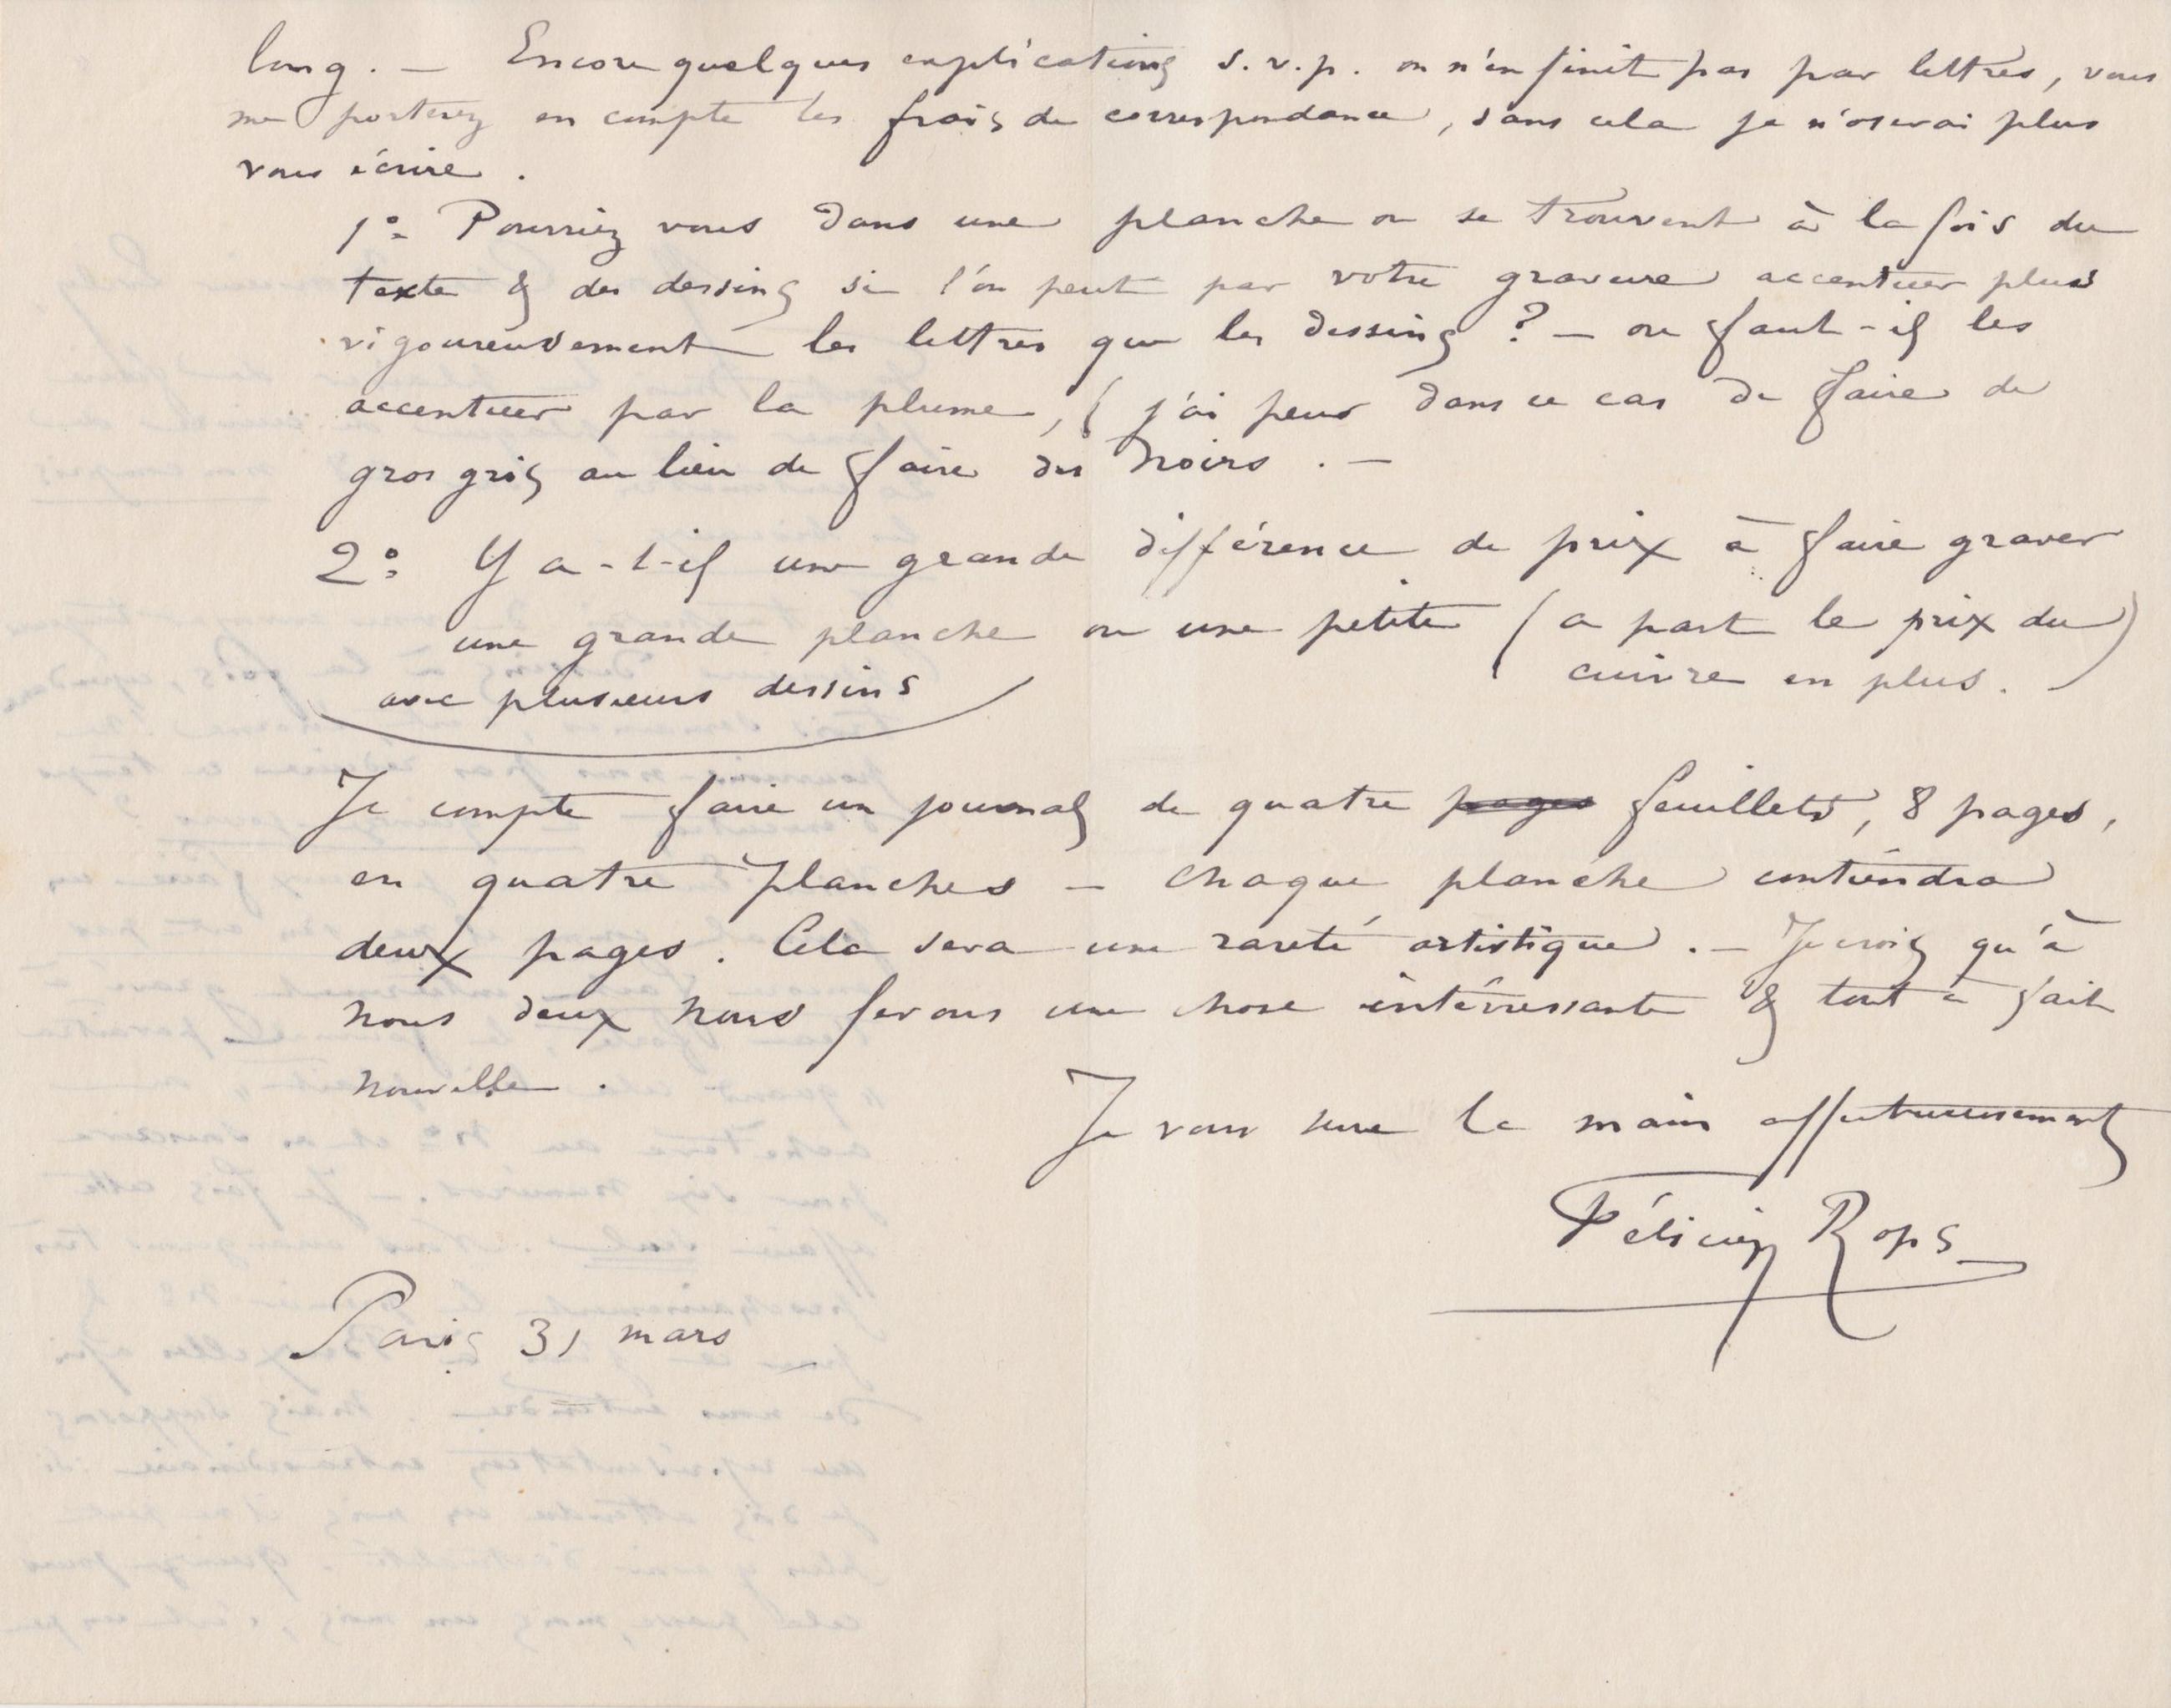 long. — Encore quelques explications s.v.p. on n'en finit pas par lettres, vous
me porterez en compte les frais de correspondance, sans cela je n'oserai plus
vous écrire.
1º Pourriez vous dans une planche ou se trouvent à la fois du
texte & des dessins si l'on peut par votre gravure accentuer plus
vigoureusement les lettres que les dessins ? — ou faut-il les
accentuer par la plume, ( j'ai peur dans ce cas de faire de
gros gris au lieu de faire des noirs . —
2º Y a-t-il une grande différence de prix à faire graver
une grande planche ou une petite ( a part le prix du )
cuivre en plus.
avec plusieurs dessins
Je compte faire un journal de quatre pages feuillets, 8 pages,
en quatre planches — chaque planche contiendra
deux pages. Cela sera une rareté artistique. — Je crois qu'à
nous deux nous ferons une chose intérressante & tout à fait
nouvelle.
Je vous serre la main affectueusement
Félicien Rops
Paris 31 mars